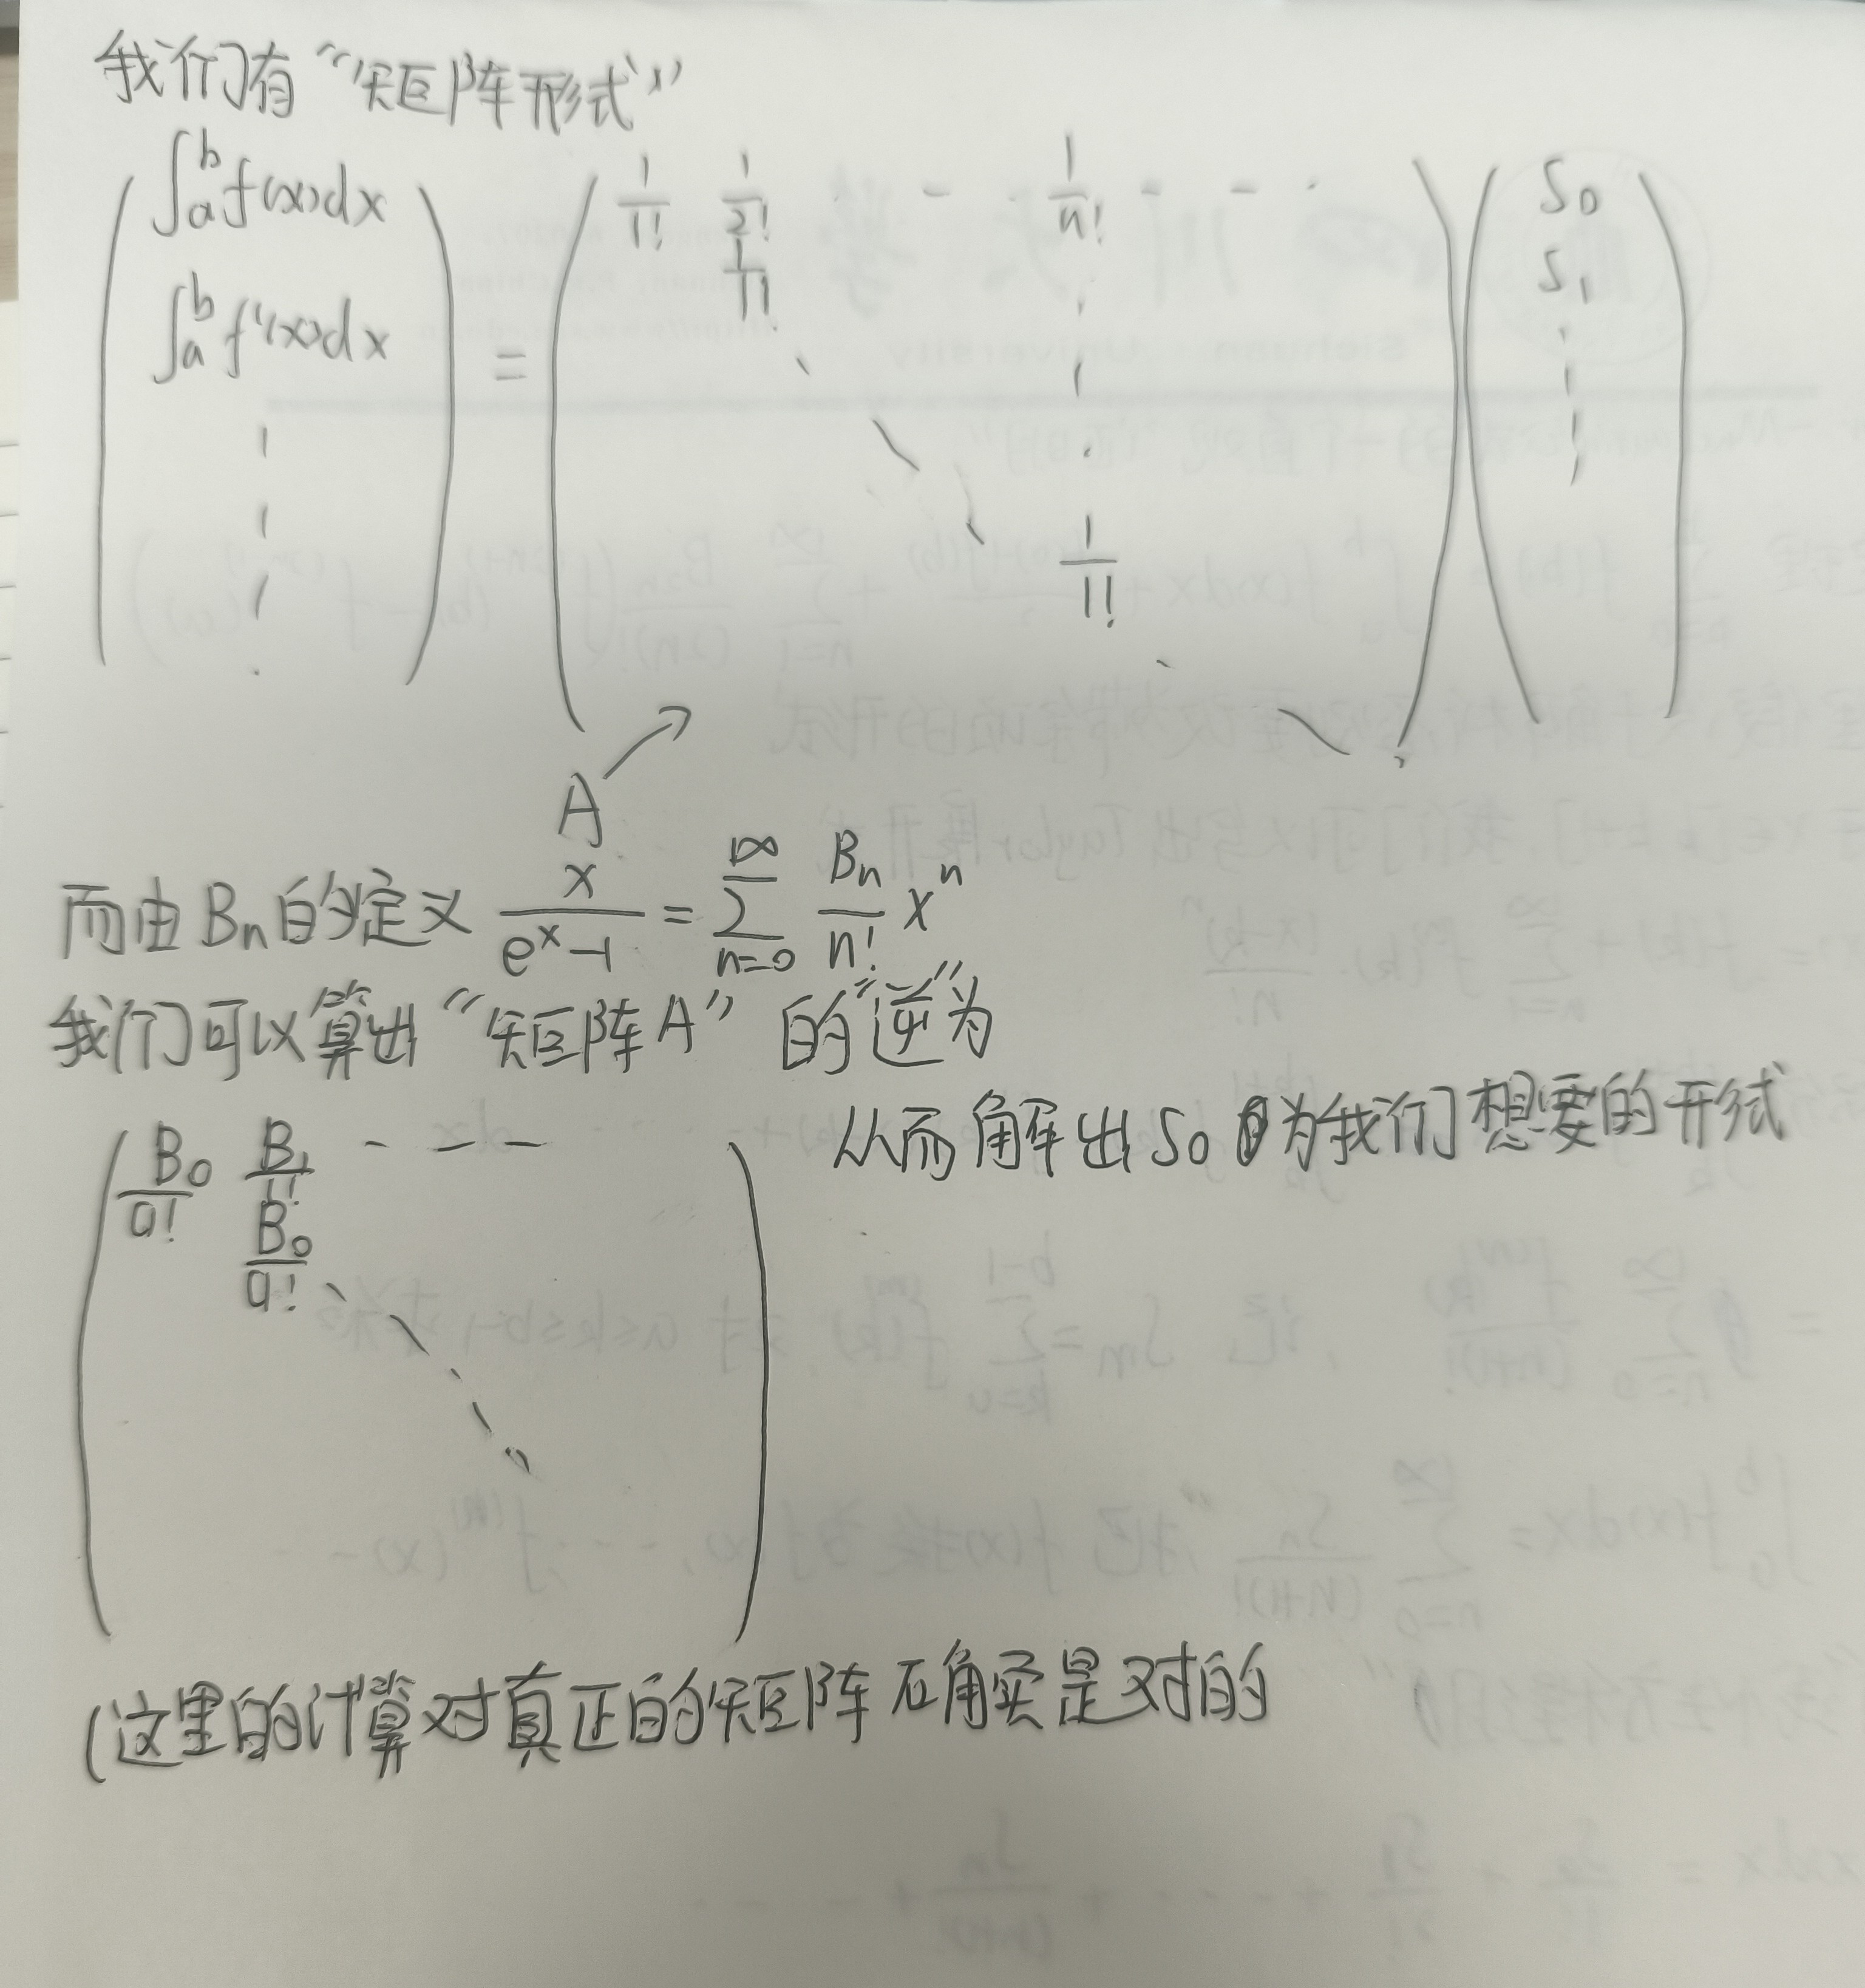 我们有“矩阵形式”
( ∫_a^b f(x)dx ; ∫_a^b f'(x)dx ; ⋮ ) = ( 1/1! 1/2! - - 1/n! - - · ; 1/1! ⋱ ⋮ ; 1/1! ⋱ ) ( S₀ ; S₁ ; ⋮ )
A ↗
而由 Bn 的定义 x/(e^x-1) = ∑_{n=0}^∞ Bn/n! x^n
我们可以算出“矩阵A”的“逆”为
从而解出 S₀ 为我们想要的形式
( B₀/0! B₁/1! - - - ; B₀/0! ⋱ )
(这里的计算对真正的矩阵确实是对的